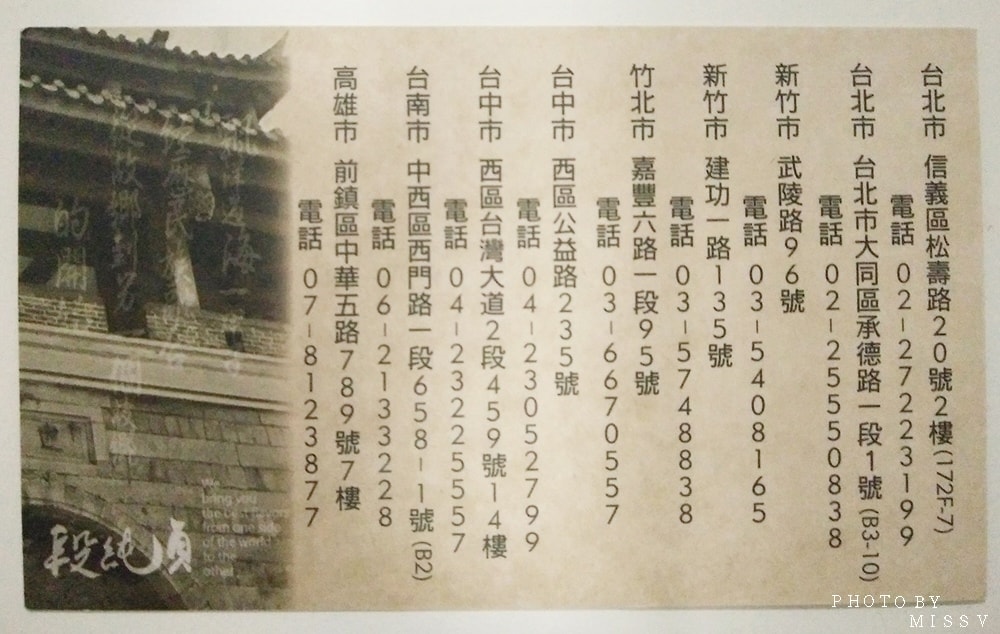 台北市 信義區松壽路20號2樓(172F-7)
電話 02-27223199
台北市 台北市大同區承德路一段1號(B3-10)
電話 02-25550838
新竹市 武陵路96號
電話 03-5408165
新竹市 建功一路135號
電話 03-5748838
竹北市 嘉豐六路一段95號
電話 03-6670557
台中市 西區公益路235號
電話 04-23052799
台中市 西區台灣大道2段459號14樓
電話 04-23225557
台南市 中西區西門路一段658-1號(B2)
電話 06-2133228
高雄市 前鎮區中華五路789號7樓
電話 07-8123877
We
bring you
from one side
of the world
to the
other
段純貞
PHOTO BY
MISSV